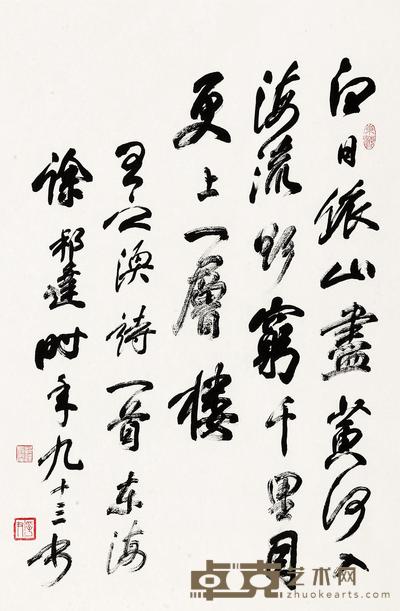 白日依山盡黃河入
海流欲窮千里目
更上一層樓
王之渙詩一首東海
徐邦達時年九十三書
卓克艺术网
zhuokearts.com